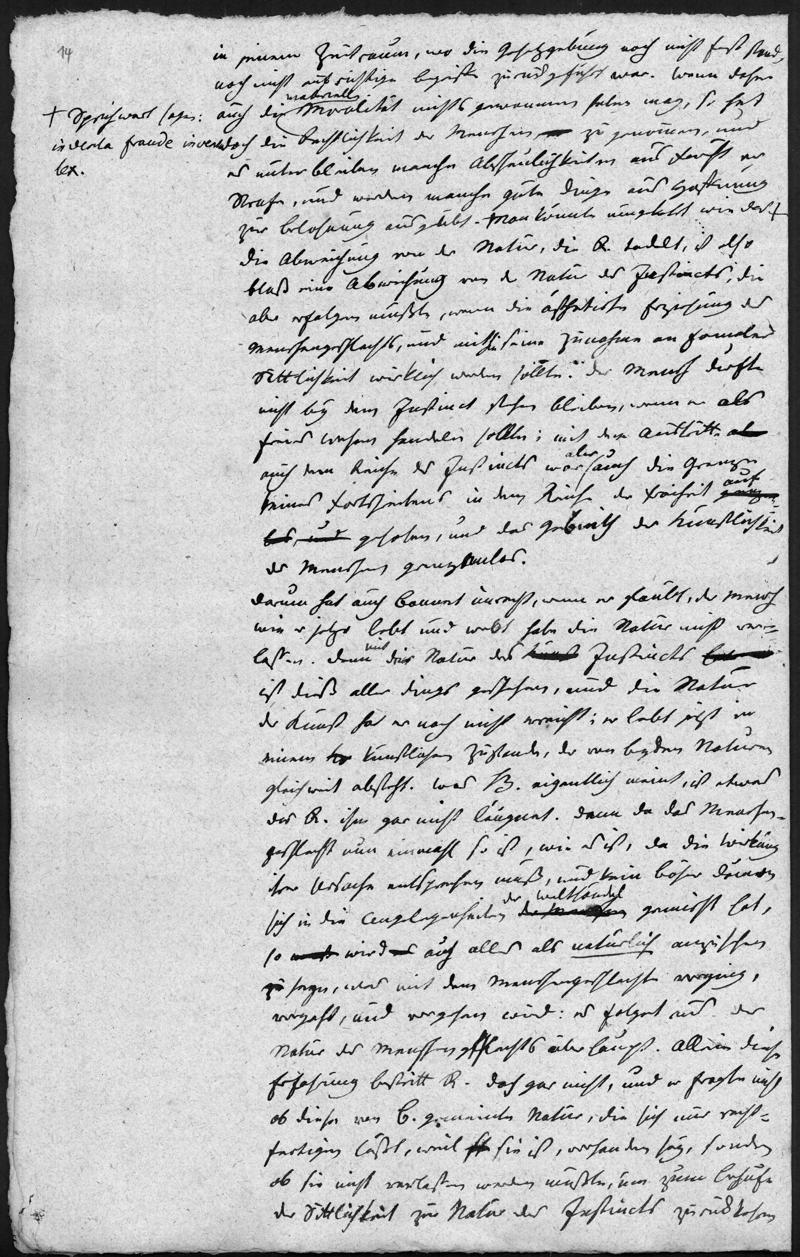 14
in jenem Zeitraum, wo die Gesetzgebung noch nicht fest stand,
noch nicht auf richtige Begriffe zurückgeführt war. Wenn daher
materielle
auch die Moralität nichts gewonnen haben mag, so hat
+ Sprichwort sagen:
inventa lex.
doch die Rechtlichkeit der Menschen zu genommen, und
es unterbleiben manche Abscheulichkeiten aus Furcht vor
Strafe, und werden manche gute Dinge aus Hoffnung
zur Belohnung ausgeübt. Man könnte umgekehrt wie das +
die Abweichung von der Natur, die R. tadelt, ist also
bloß eine Abweichung von der Natur des Instincts, die
aber erfolgen mußte, wenn die ästhetische Erziehung des
Menschengeschlechts, und mithin seine Zunahme an formeller
Sittlichkeit wirklich werden sollte. der Mensch durfte
nicht bey dem Instinct stehen bleiben, wenn er als
freies Wesen handeln sollte; mit dem Austritt
aus dem Reiche des Instincts war aber auch die Grenze
seines Fortschreitens in dem Reiche der Freiheit auf
gehoben, und das Gebieth der Künstlichkeit
des Menschen grenzenlos.
darum hat auch Bonnet unrecht, wenn er glaubt, der Mensch
wie er jetzo lebt und webt habe die Natur nicht ver-
lassen. denn mit der Natur des Instincts
ist dieß aller dings geschehen, und die Natur
der Kunst hat er noch nicht erreicht; er lebt jetzt in
einem künstlichen Zustande, der von beyden Naturen
gleichweit absteht. was B. eigentlich meint, ist etwas
das R. ihm gar nicht läugnet. denn da das Menschen-
geschlecht nun einmahl so ist, wie es ist, da die Wirkung
ihrer Ursache entsprechen muß, und kein böser Dämon
sich in die Angelegenheiten der Welthändel gemischt hat,
so wird auch alles als natürlich anzusehen
zu seyn, was mit dem Menschengeschlecht vorging,
vorgeht, und vorgehen wird: es folget aus der
Natur des Menschengeschlechts überhaupt. Allein diese
Erfahrung bestritt R. doch gar nicht, und er fragte nicht
ob diese von B. gemeinte Natur, die sich nur recht-
fertigen läßt, weil sie ist, vorhanden sey, sondern
ob sie nicht verlassen werden müßte, um zum Behufe
der Sittlichkeit zur Natur des Instincts zurückkehren